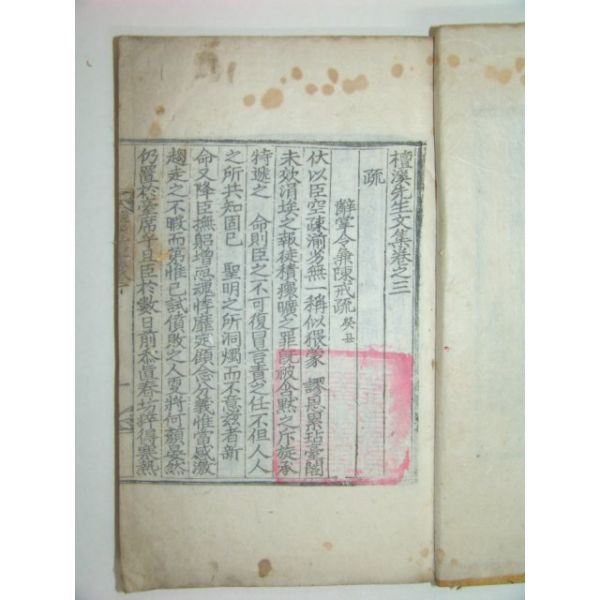 檀溪先生文集卷之三
疏
辭掌令兼陳戒疏 癸丑
伏以臣空疎渝劣無一稱似猥蒙 謬恩累玷臺閣
未效涓埃之報徒積瘝曠之罪旣被含默之斥旋承
特遞之 命則臣之不可復冒言責之任不但人人
之所共知固已 聖明之所洞燭而不意玆者新
命又降臣撫躬增忸魂悸靡定顧念分義惟當感激
趨走之不暇而第惟已試僨敗之人更將何顔晏然
仍置於臺席乎且臣於數日前忝直春坊猝得寒熱